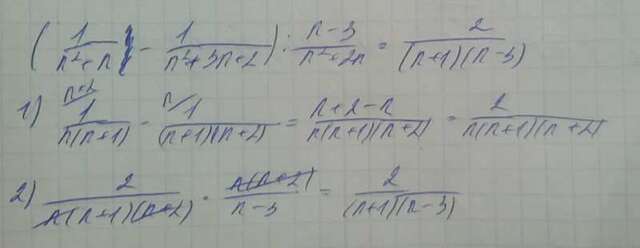 (1/(n²+n) - 1/(n²+3n+2)) : (n-3)/(n²+2n) = 2/((n+1)(n-3))
1) n+2 1/(n(n+1)) - n 1/((n+1)(n+2)) = (n+2-n)/(n(n+1)(n+2)) = 2/(n(n+1)(n+2))
2) 2/(n(n+1)(n+2)) · n(n+2)/(n-3) = 2/((n+1)(n-3))